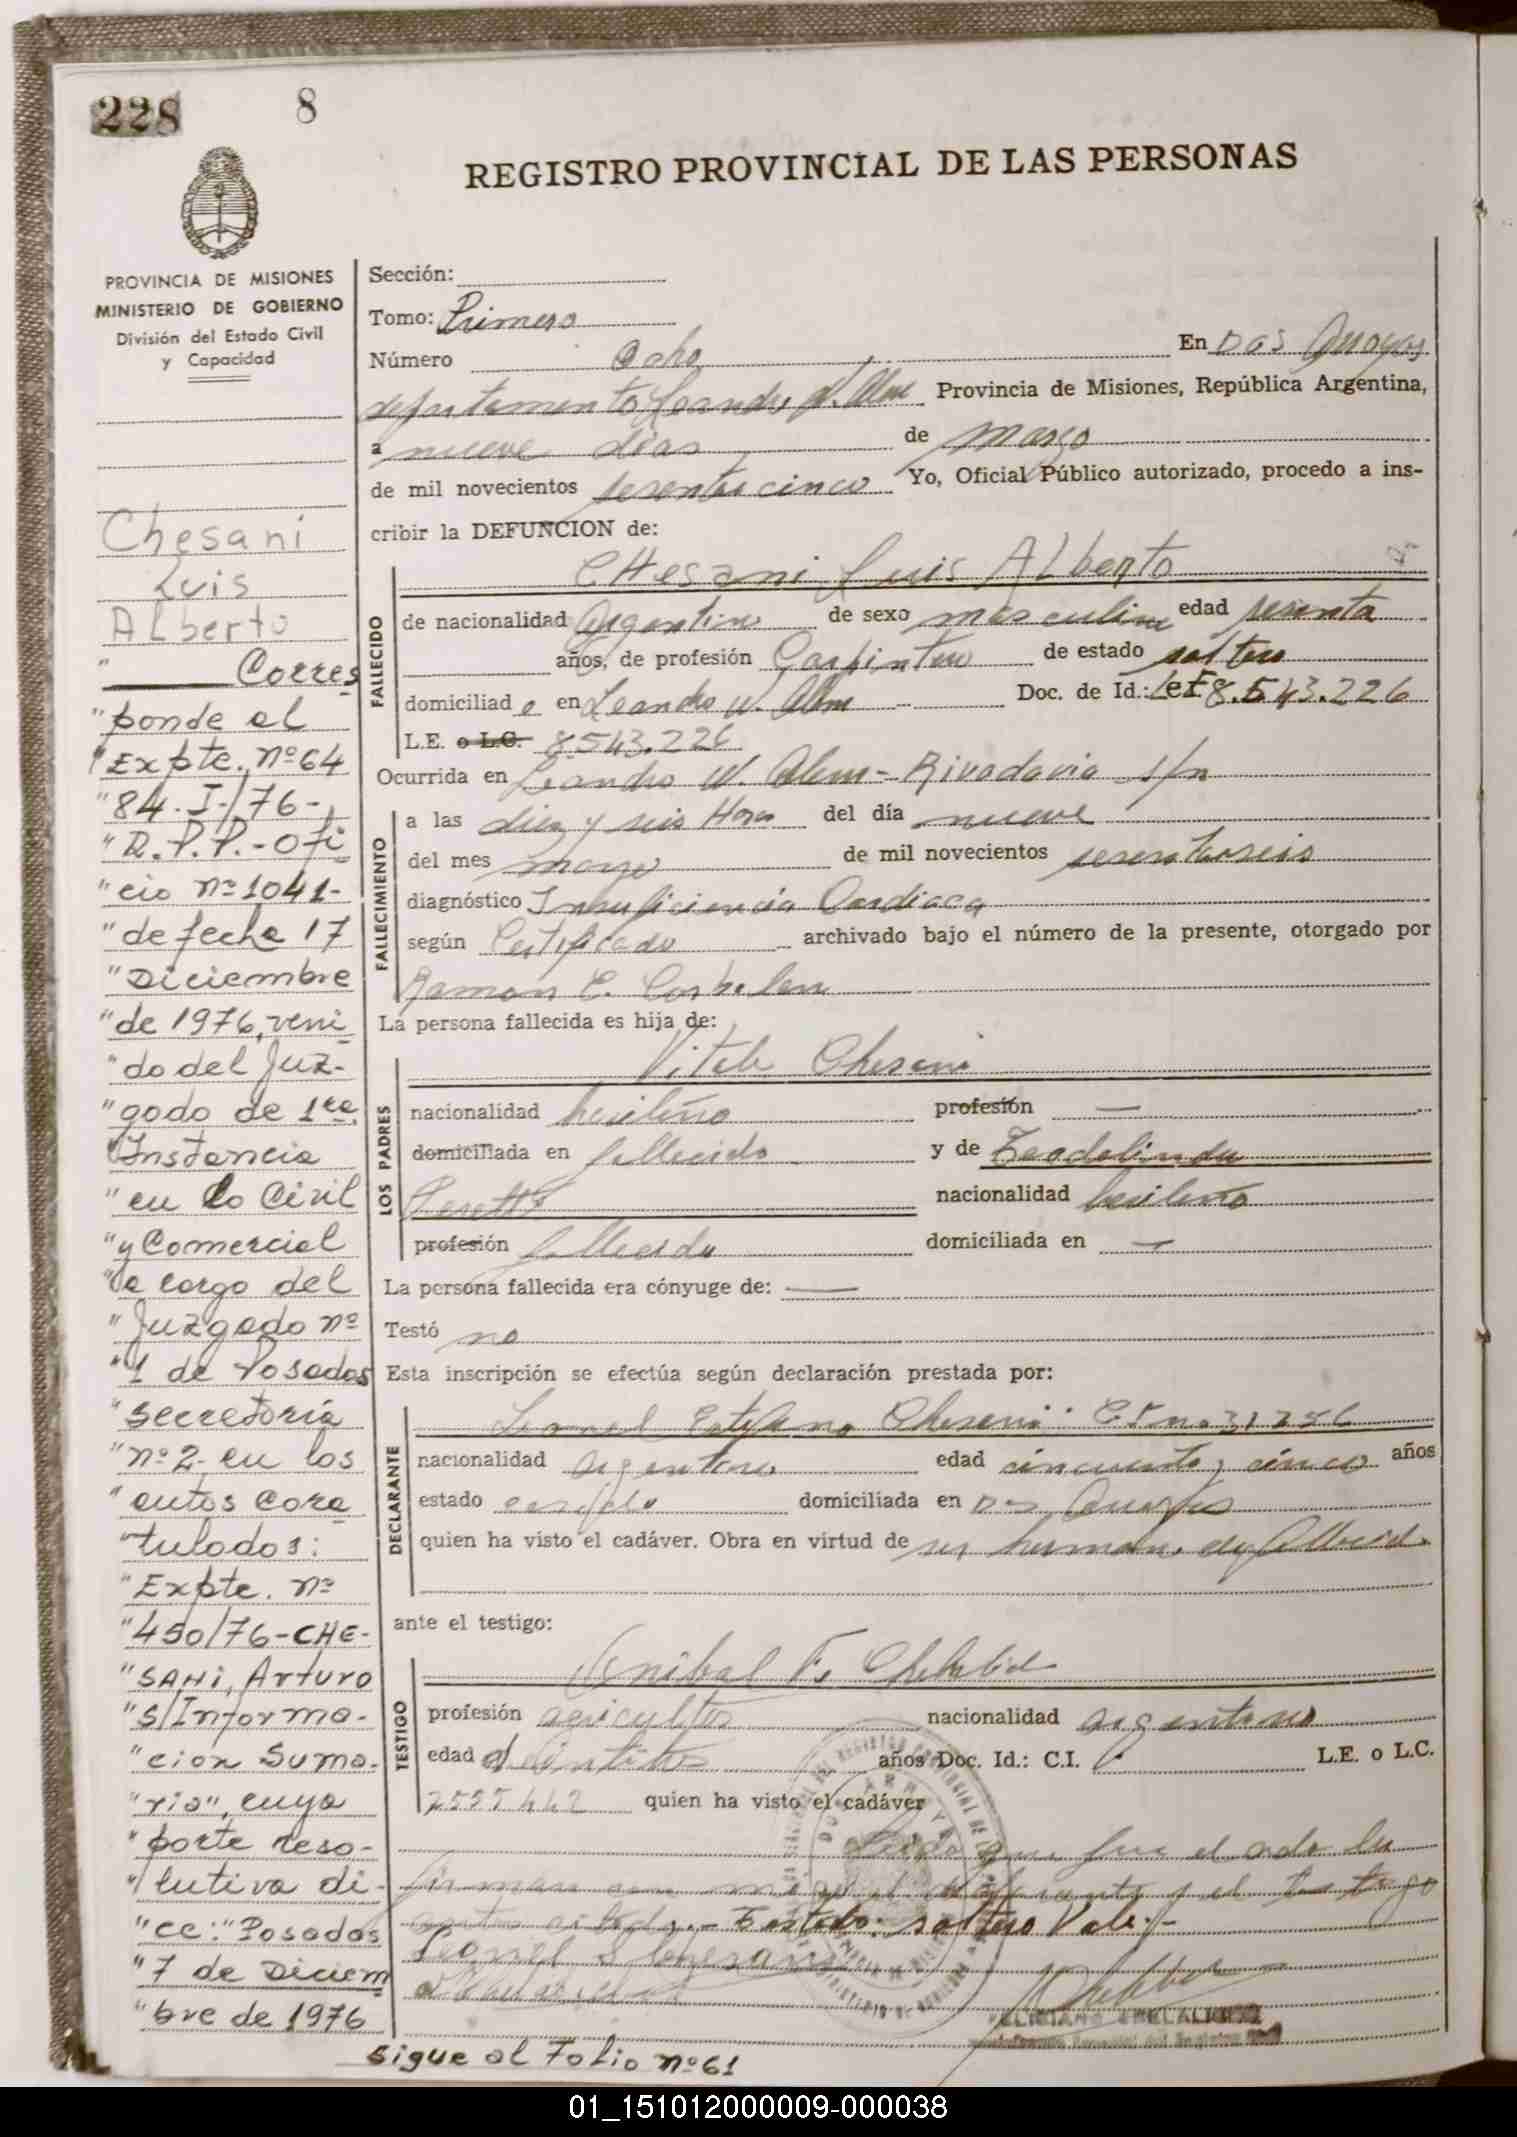 228
8
REGISTRO PROVINCIAL DE LAS PERSONAS
PROVINCIA DE MISIONES
MINISTERIO DE GOBIERNO
División del Estado Civil
y Capacidad
Chesani
Luis
Alberto
" Corres
"ponde al
"Expte. nº 64
"84-I-/76-
"R.P.P.-Ofi
"cio nº 1041-
"de fecha 17
"Diciembre
"de 1976, veni
"do del Juz-
"gado de 1ra
"Instancia
"en lo Civil
"y Comercial
"a cargo del
"Juzgado nº
"1 de Posadas
"Secretaría
"nº 2 en los
"autos cara
"tulados:
"Expte. nº
"450/76-CHE-
"SANI, Arturo
"S/Informa-
"cion Suma-
"ria", cuya
"parte reso-
"lutiva di-
"ce: "Posadas
"7 de Diciem
"bre de 1976
Sección:
Tomo: Primero
Número Ocho En Dos Arroyos
departamento Leandro N. Alem Provincia de Misiones, República Argentina,
a nueve días de marzo
de mil novecientos sesenta cinco Yo, Oficial Público autorizado, procedo a ins-
cribir la DEFUNCION de:
FALLECIDO
CHesani Luis Alberto
de nacionalidad Argentino de sexo masculino edad sesenta
años, de profesión Carpintero de estado soltero
domiciliado en Leandro N. Alem Doc. de Id.: 8.543.226
L.E. o L.C. 8543.226
Ocurrida en Leandro N. Alem - Rivadavia s/n
FALLECIMIENTO
a las diez y seis Horas del día nueve
del mes marzo de mil novecientos
diagnóstico Insuficiencia Cardiaca
según Certificado archivado bajo el número de la presente, otorgado por
Ramon E.
La persona fallecida es hija de:
LOS PADRES
Chesani
nacionalidad brasileño profesión —
domiciliada en fallecido y de Teodolinda
nacionalidad brasileño
profesión fallecida domiciliada en —
La persona fallecida era cónyuge de: —
Testó no
Esta inscripción se efectúa según declaración prestada por:
DECLARANTE
Leonel Chesani
nacionalidad argentino edad cincuenta y cinco años
estado casado domiciliada en Dos Arroyos
quien ha visto el cadáver. Obra en virtud de ser hermano del fallecido
ante el testigo:
TESTIGO
Anibal F.
profesión agricultor nacionalidad argentino
edad años Doc. Id.: C.I. L.E. o L.C.
quien ha visto el cadáver
que fue el acta la
firman el declarante y el testigo
Estado: soltero Vale.-
sigue al Folio nº 61
01_151012000009-000038